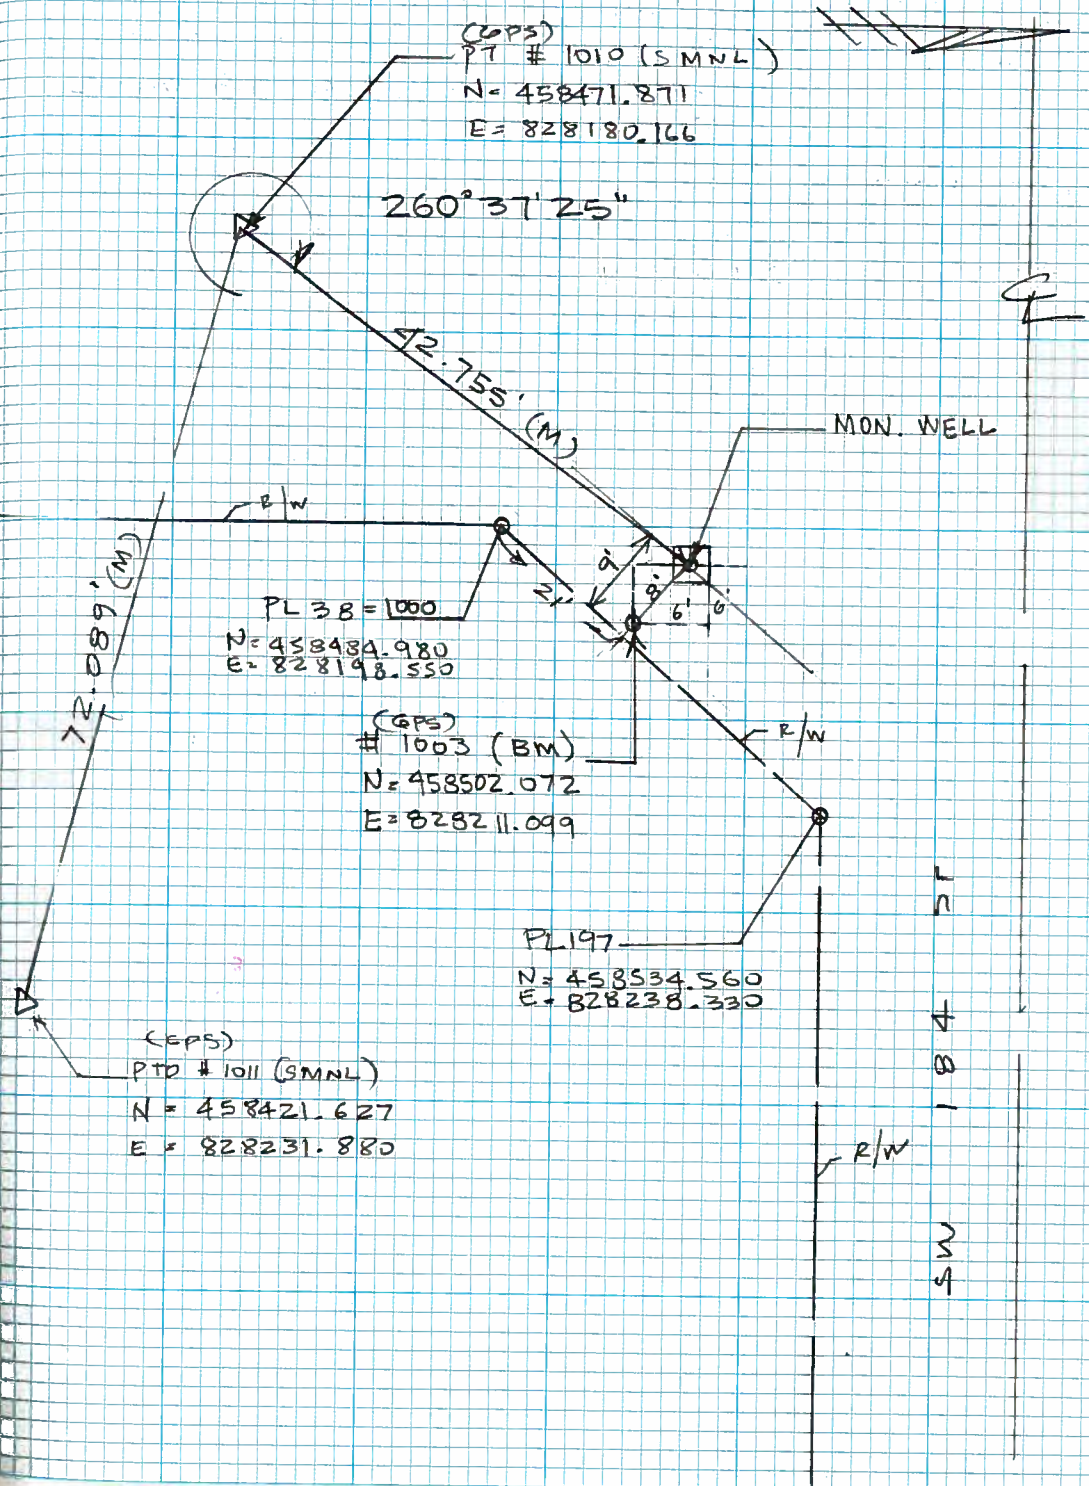 (GPS)
PT # 1010 (SMNL)
N= 458471.871
E= 828180.166
260°37'25"
42.755' (M)
MON. WELL
R/W
9'
8'
6'
6'
PL 38 = 1000
N= 458484.980
E= 828198.550
72.089' (M)
(GPS)
# 1003 (BM)
N= 458502.072
E= 828211.099
R/W
PL197
N= 458534.560
E= 828238.330
(GPS)
PTD # 1011 (SMNL)
N = 458421.627
E = 828231.880
R/W
SW 184 ST